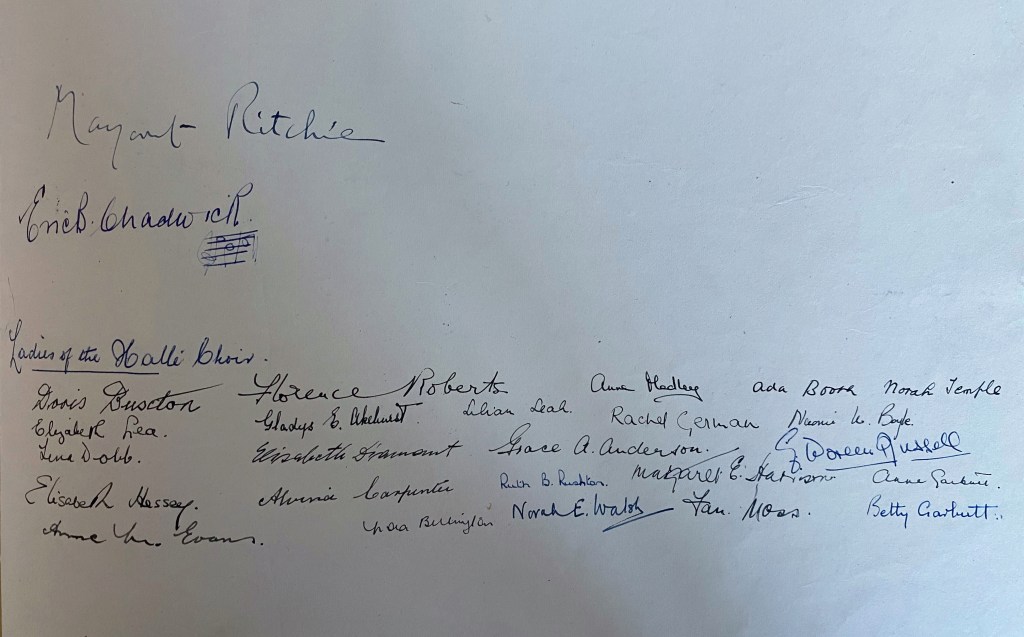 Margaret Ritchie
Eric B. Chadwick.
Ladies of the Hallé Choir.
Doris Florence Roberts Anne Hadley Ada Booth Norah Temple
Elizabeth Lea. Gladys E. Akehurst. Lilian Leah. Rachel German Naomi M. Boyle.
Lena Dobb. Elisabeth Diamant Grace A. Anderson. G. Doreen Russell
Elizabeth Hessey. Alvinia Carpenter Ruth B. Rushton. Margaret E. Harrison Anne
Anne M. Evans. Billington Norah E. Walsh Moss. Betty Garbutt.